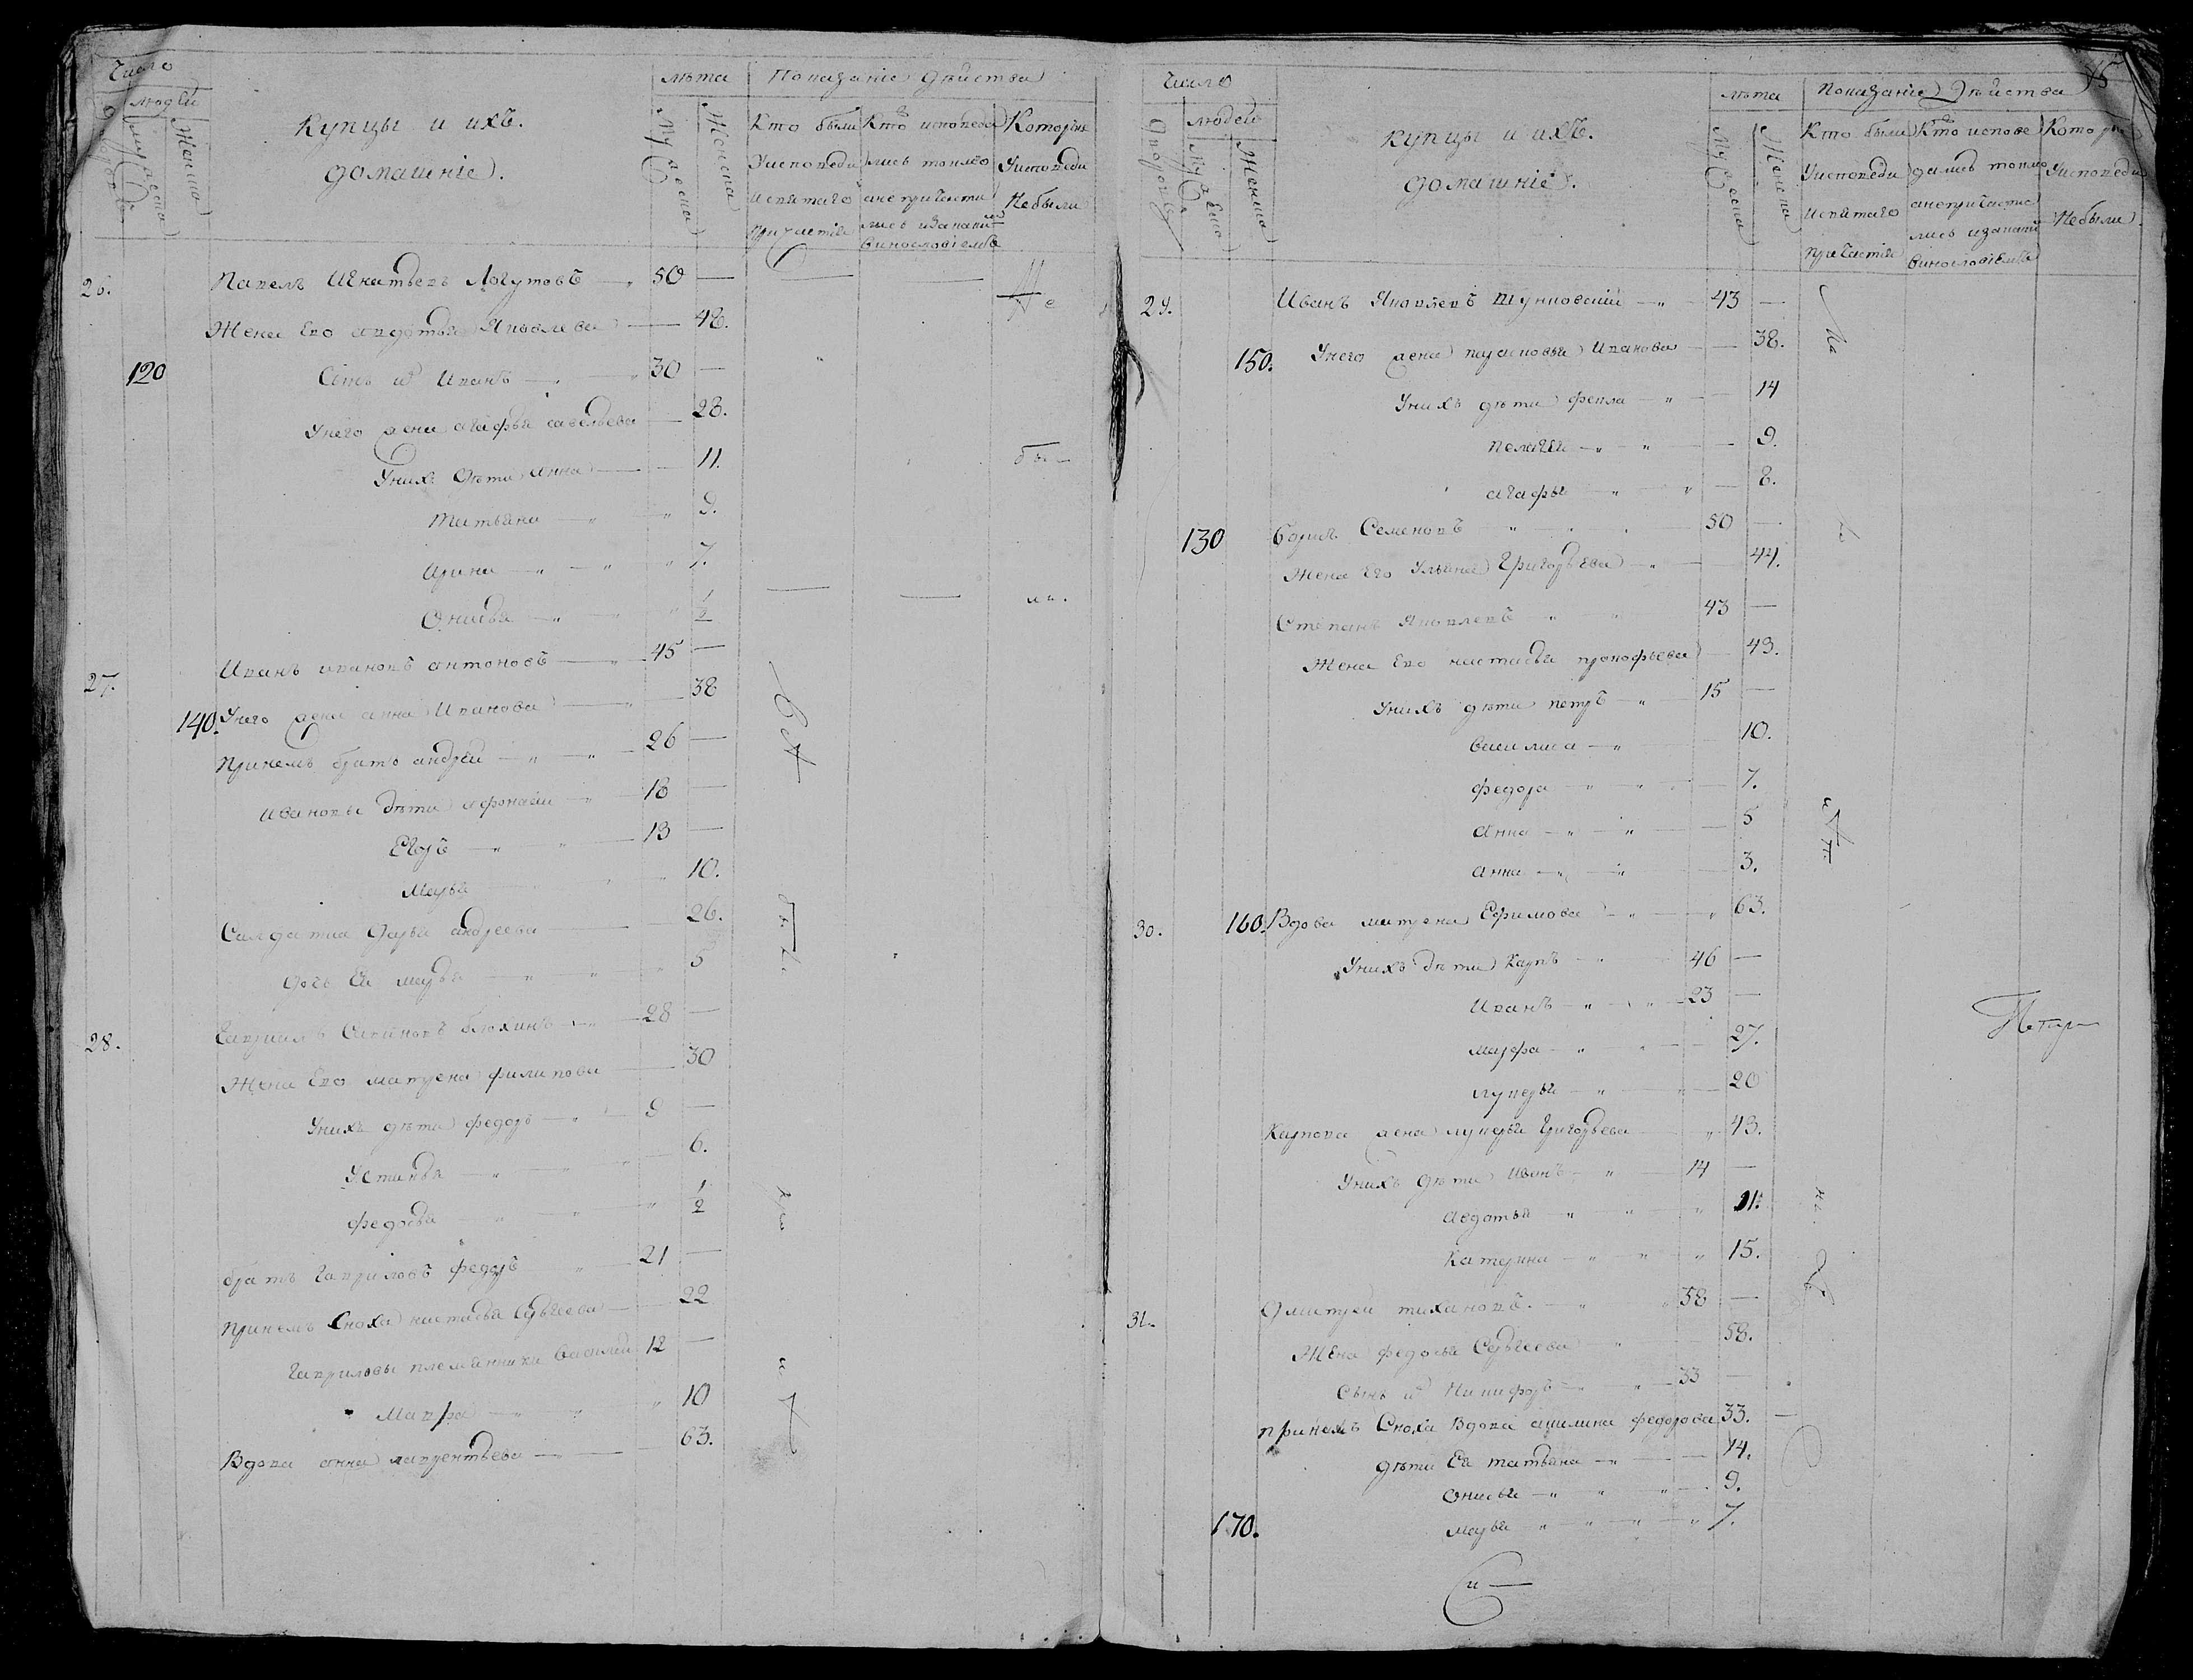 Число
людей
дворовъ
мужеска
женска
купцы и ихъ
домашніе.
лѣта
мужеска
женска
Показаніе дѣйства
Кто были уисповеди исвятаго причастія
Кто исповедались токмо анепричастились изакаким винословіемъ
Которые уисповеди небыли
26. Павелъ Игнатьевъ Логутовъ 50 —
Жена Его авдотья Яковлева — 48.
120 Сынъ их Иванъ 30 —
Унего жена агафья савельева — 28.
Унихъ дѣти анна — 11. бы
татьяна 9.
Ирина 7.
Онисья ½ ли.
27. Иванъ ивановъ антоновъ 45 —
140. Унего жена анна Иванова 38
Принемъ братъ андрей 26 —
ивановы дѣти афонасей 18 —
Егоръ 13 —
Марья 10.
Салдатка дарья андреева 26.
дочь Ея марья 5
28. Гаврилъ Семеновъ 28 —
Жена Его матрена филипова 30
Унихъ дѣти федоръ 9 —
Устинья 6.
федосья ½
братъ гавриловъ федоръ 21 —
Принемъ Сноха настасья Сергеева 22
Гавриловы племянники Василей 12 —
Мавра 10
Вдова анна лаврентьева 63.
15
Число
людей
дворовъ
мужеска
женска
купцы и ихъ.
домашніе.
лѣта
мужеска
женска
Показаніе дѣйства
Кто были уисповеди исвятаго причастія
Кто исповедались токмо анепричастились изакаким винословіемъ
Которые уисповеди небыли
29. Иванъ Яковлевъ 43 —
150. Унего жена Иванова — 38.
Унихъ дѣти фекла 14
пелагея 9.
агафья 8.
130 борисъ Семеновъ 50 —
Жена Его Ульяна Григорьева 44.
Степанъ Яковлевъ 43 —
Жена Его настасья прокофьева 43.
Унихъ дѣти петръ 15 —
василиса 10.
федора 7.
анна 5
анна 3.
30. 160. Вдова матрена Ефимова 63.
Унихъ дѣти Карпъ 46 —
Иванъ 23 —
марфа 27.
лукерья 20
Карпова жена лукерья Григорьева 43.
Унихъ дѣти Иванъ 14 —
авдотья 21.
Катерина 15.
31. Дмитрей тихановъ. 58 —
Жена федосья Сергеева 58.
Сынъ их Никифоръ 33 —
принемъ Сноха Вдова акилина федорова 33.
дѣти Ея татьяна 14.
Онисья 9.
170. марья 7.